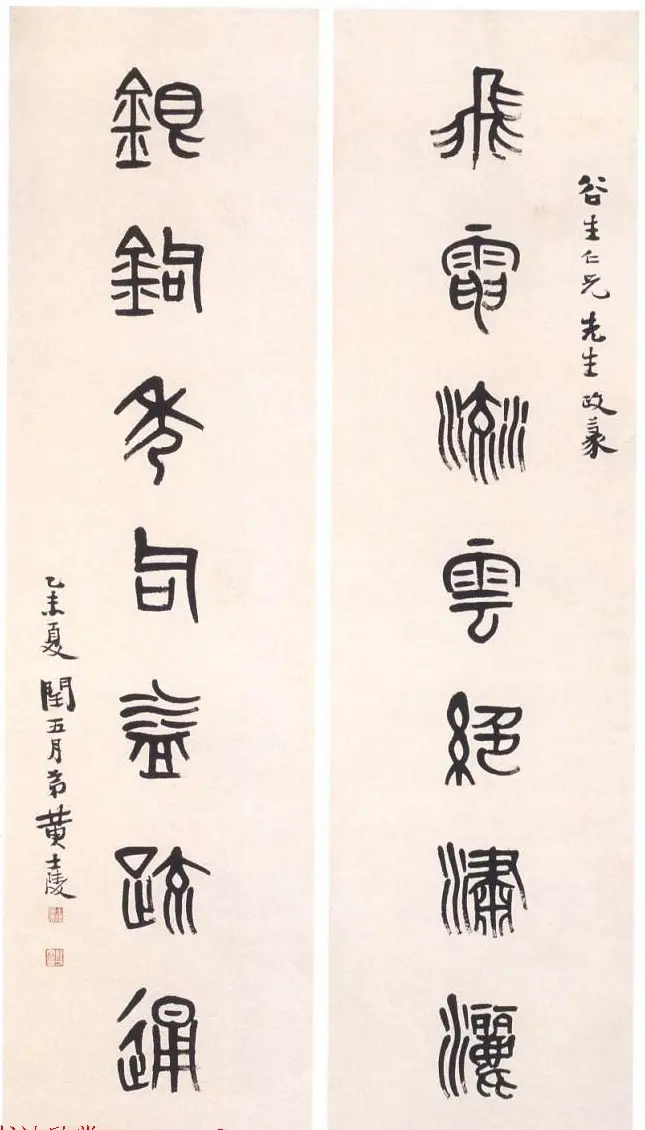 谷生仁兄先生政篆
飛電流雲絕瀟灑
銀鉤秀句益疏通
乙未夏閏五月弟黃士陵